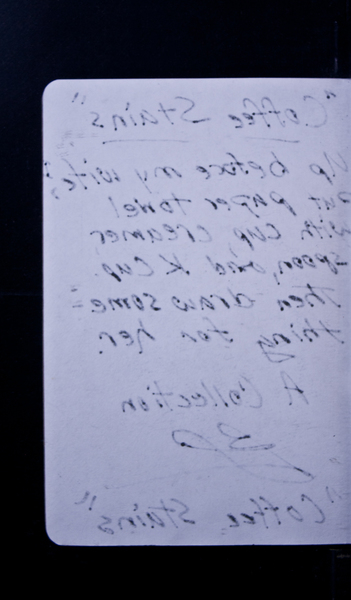 "Coffee Stains"
Up before my wife,
put paper towel
with cup, creamer
spoon, and K Cup.
Then draw some=
thing for her.
A Collection
"Coffee Stains"